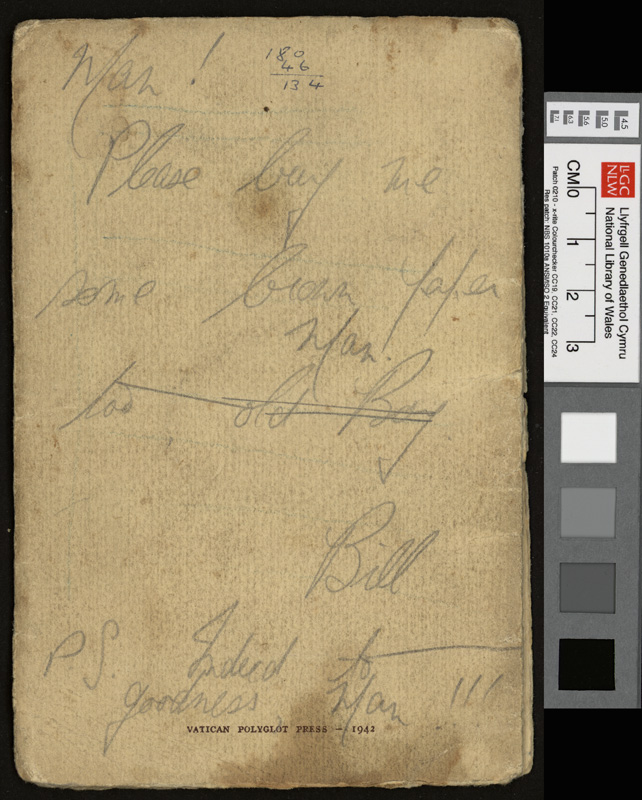 Man !
180
46
134
Please buy me
some brown paper
Man.
too old Boy
Bill
P.S. Indeed to
goodness Man !!!
VATICAN POLYGLOT PRESS — 1942
4.5
5.0
5.6
6.3
7.1
LLGC
NLW
Llyfrgell Genedlaethol Cymru
National Library of Wales
CM 0 1 2 3
Patch 0210 - x-rite Colourchecker CC19, CC21, CC22, CC24
Res patch: NBS 1010a ANSI/ISO 2 Equivalent